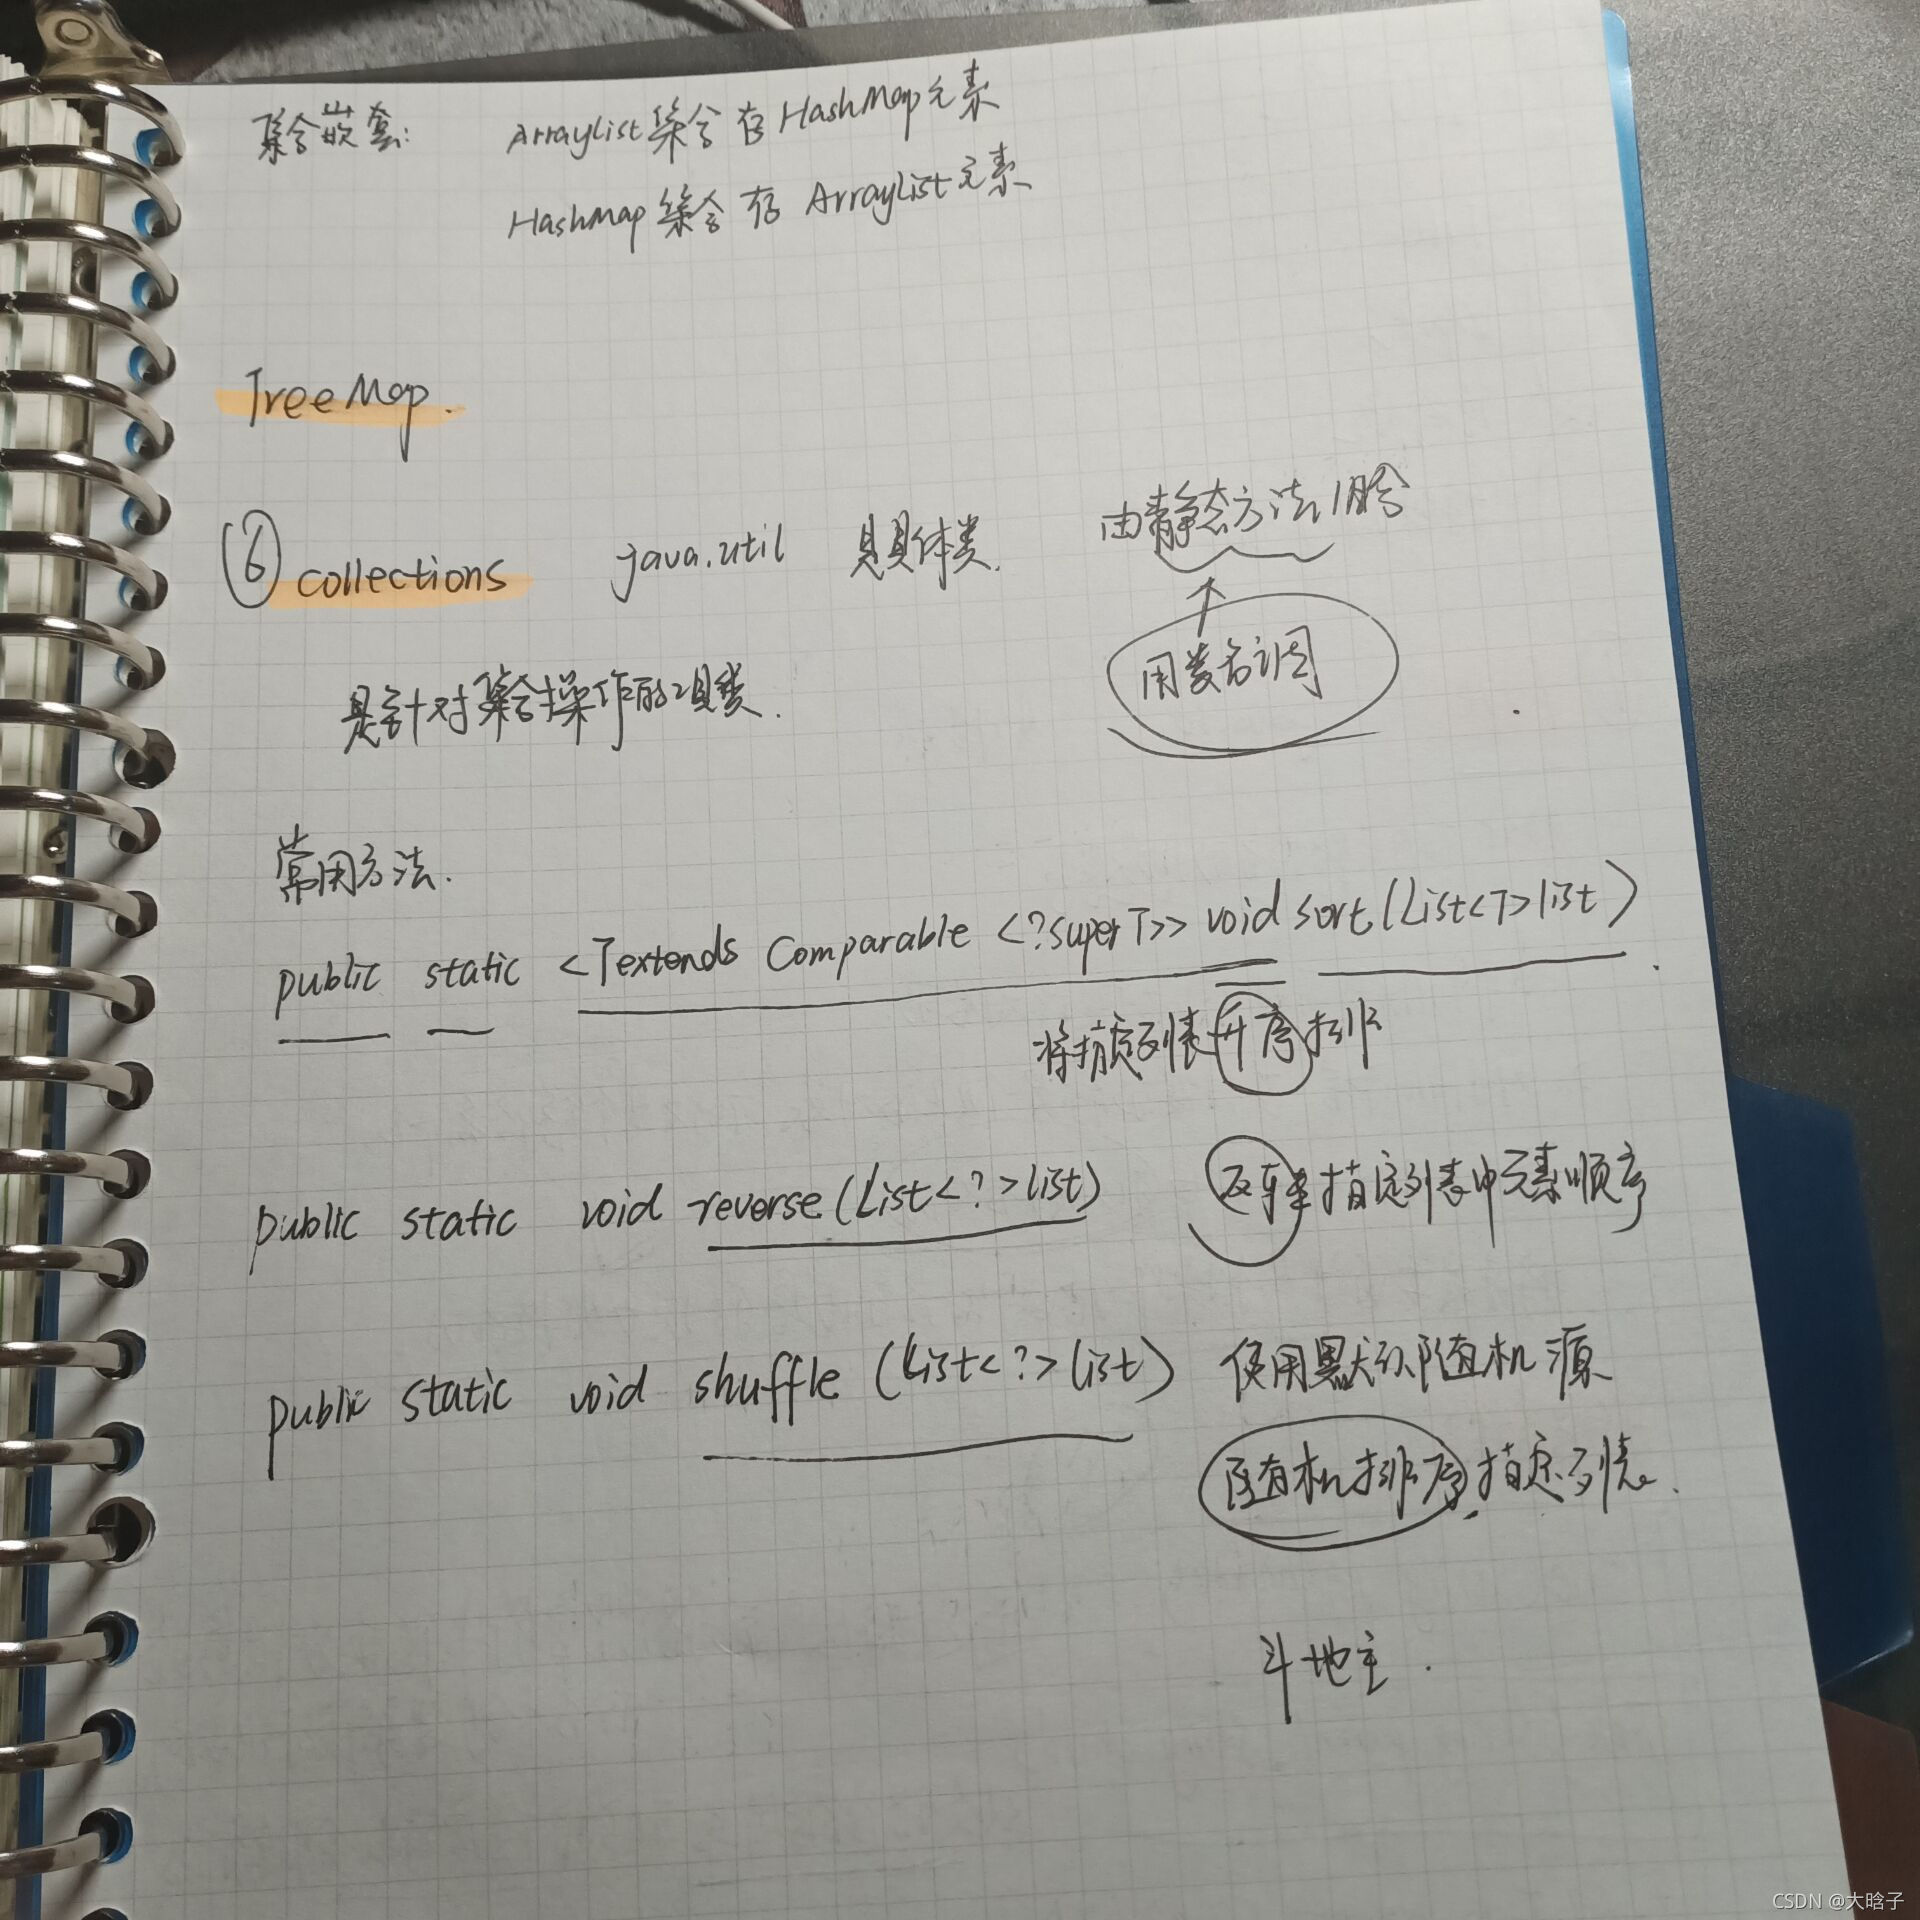 集合嵌套: ArrayList集合存HashMap元素
HashMap集合存ArrayList元素
TreeMap.
⑥ collections java.util 是具体类. 由静态方法组合
用类名调
是针对集合操作的工具类.
常用方法.
public static <T extends Comparable <? super T>> void sort(List<T> list)
将指定列表升序排
public static void reverse(List<?> list) 反转指定列表中元素顺序
public static void shuffle (List<?> list) 使用默认随机源
随机排序指定列表.
斗地主.
CSDN @大晗子